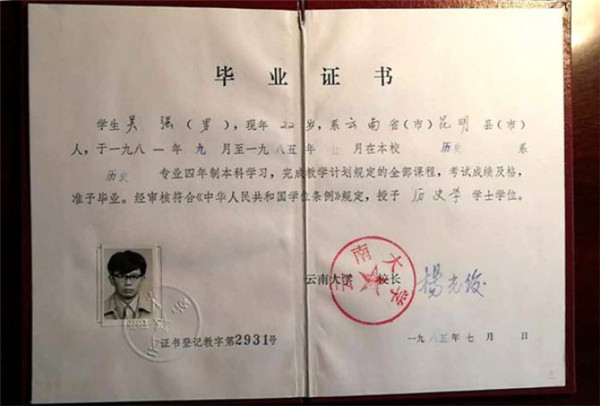 毕业证书
学生吴强(男),现年22岁,系云南省(市)昆明县(市)
人,于一九八一年九月至一九八五年七月在本校 历史 系
历史 专业四年制本科学习,完成教学计划规定的全部课程,考试成绩及格,
准予毕业。经审核符合《中华人民共和国学位条例》规定,授予 历史学 学士学位。
云南大学
云南大学 校长 杨光俊
证书登记教字第2931号
一九八五年七月 日